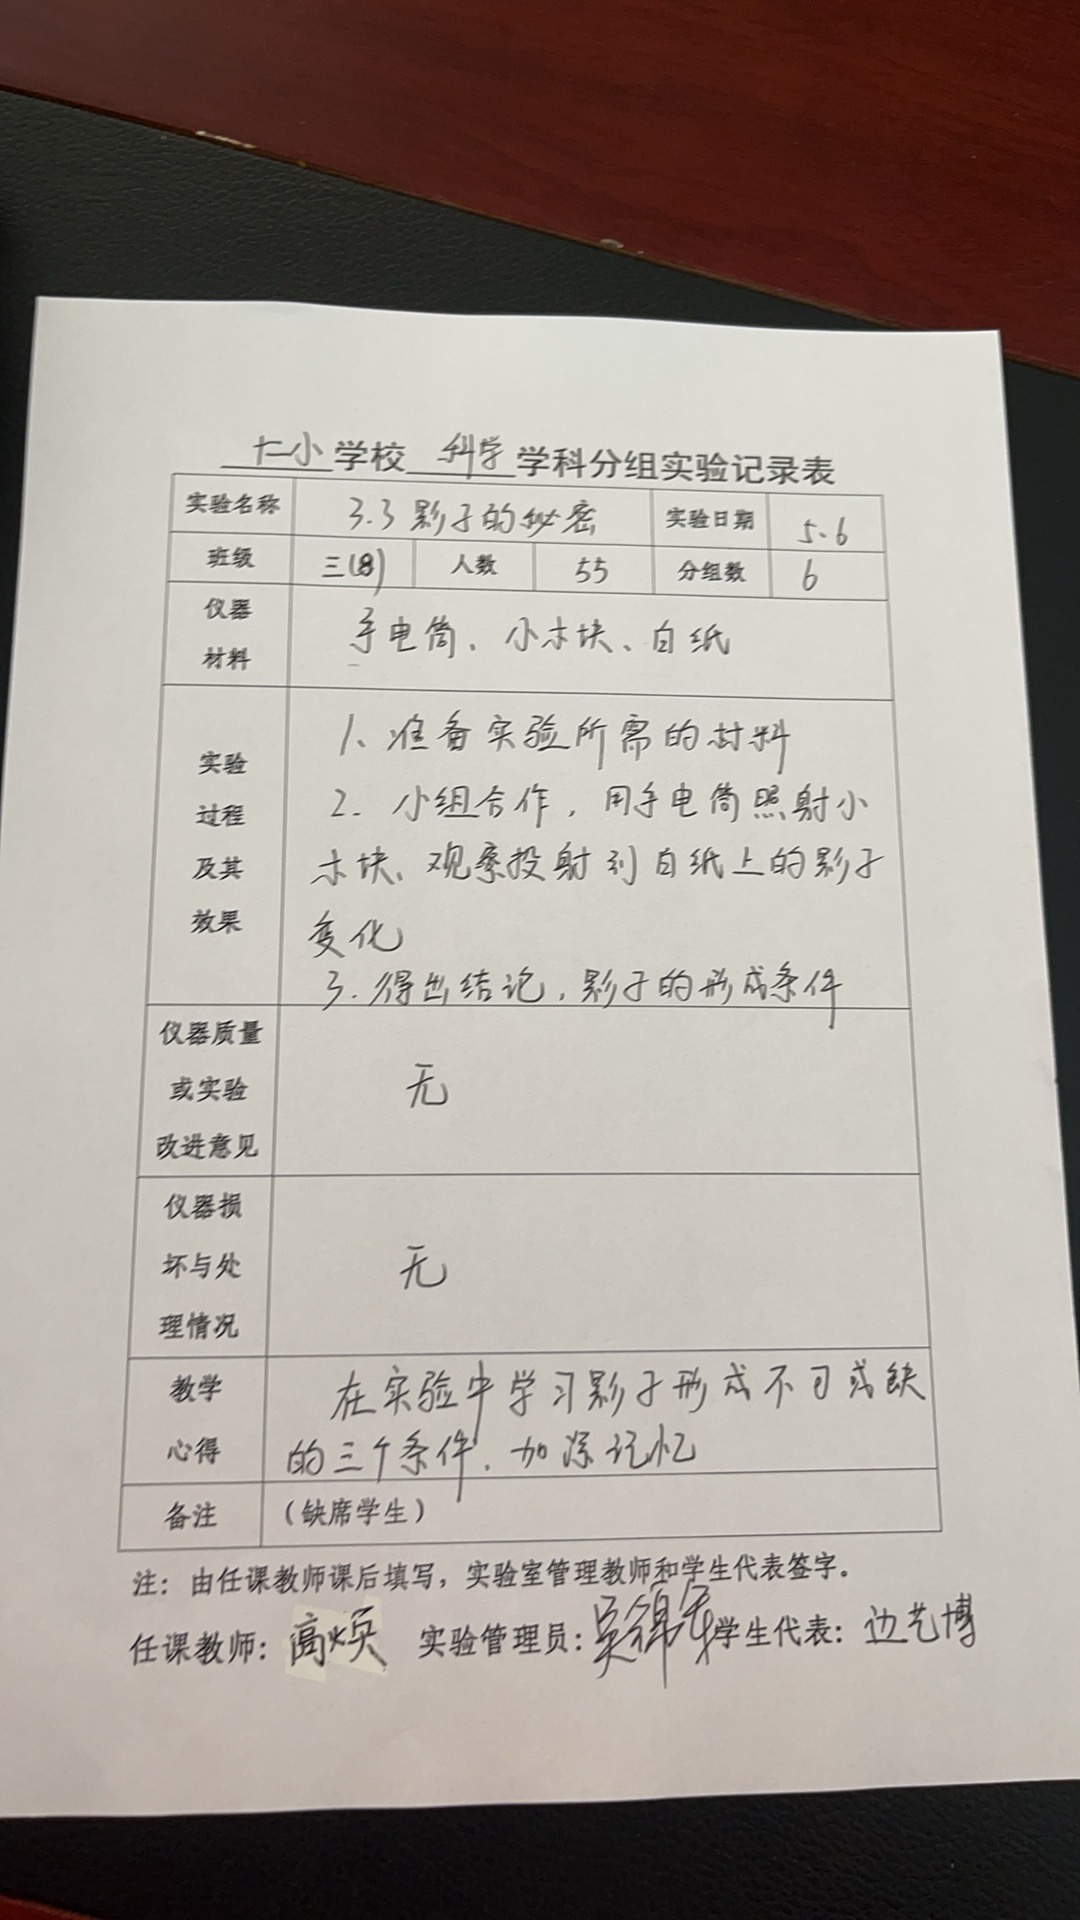 仁小学校 科学 学科分组实验记录表
实验名称 3.3影子的秘密 实验日期 5.6
班级 三(8) 人数 55 分组数 6
仪器材料 手电筒、小木块、白纸
实验过程及其效果
1、准备实验所需的材料
2、小组合作,用手电筒照射小
木块、观察投射到白纸上的影子
变化
3、得出结论,影子的形成条件
仪器质量或实验改进意见 无
仪器损坏与处理情况 无
教学心得 在实验中学习影子形成不可或缺
的三个条件,加深记忆
备注 (缺席学生)
注:由任课教师课后填写,实验室管理教师和学生代表签字。
任课教师:高焕 实验管理员:吴锦 学生代表:边艺博